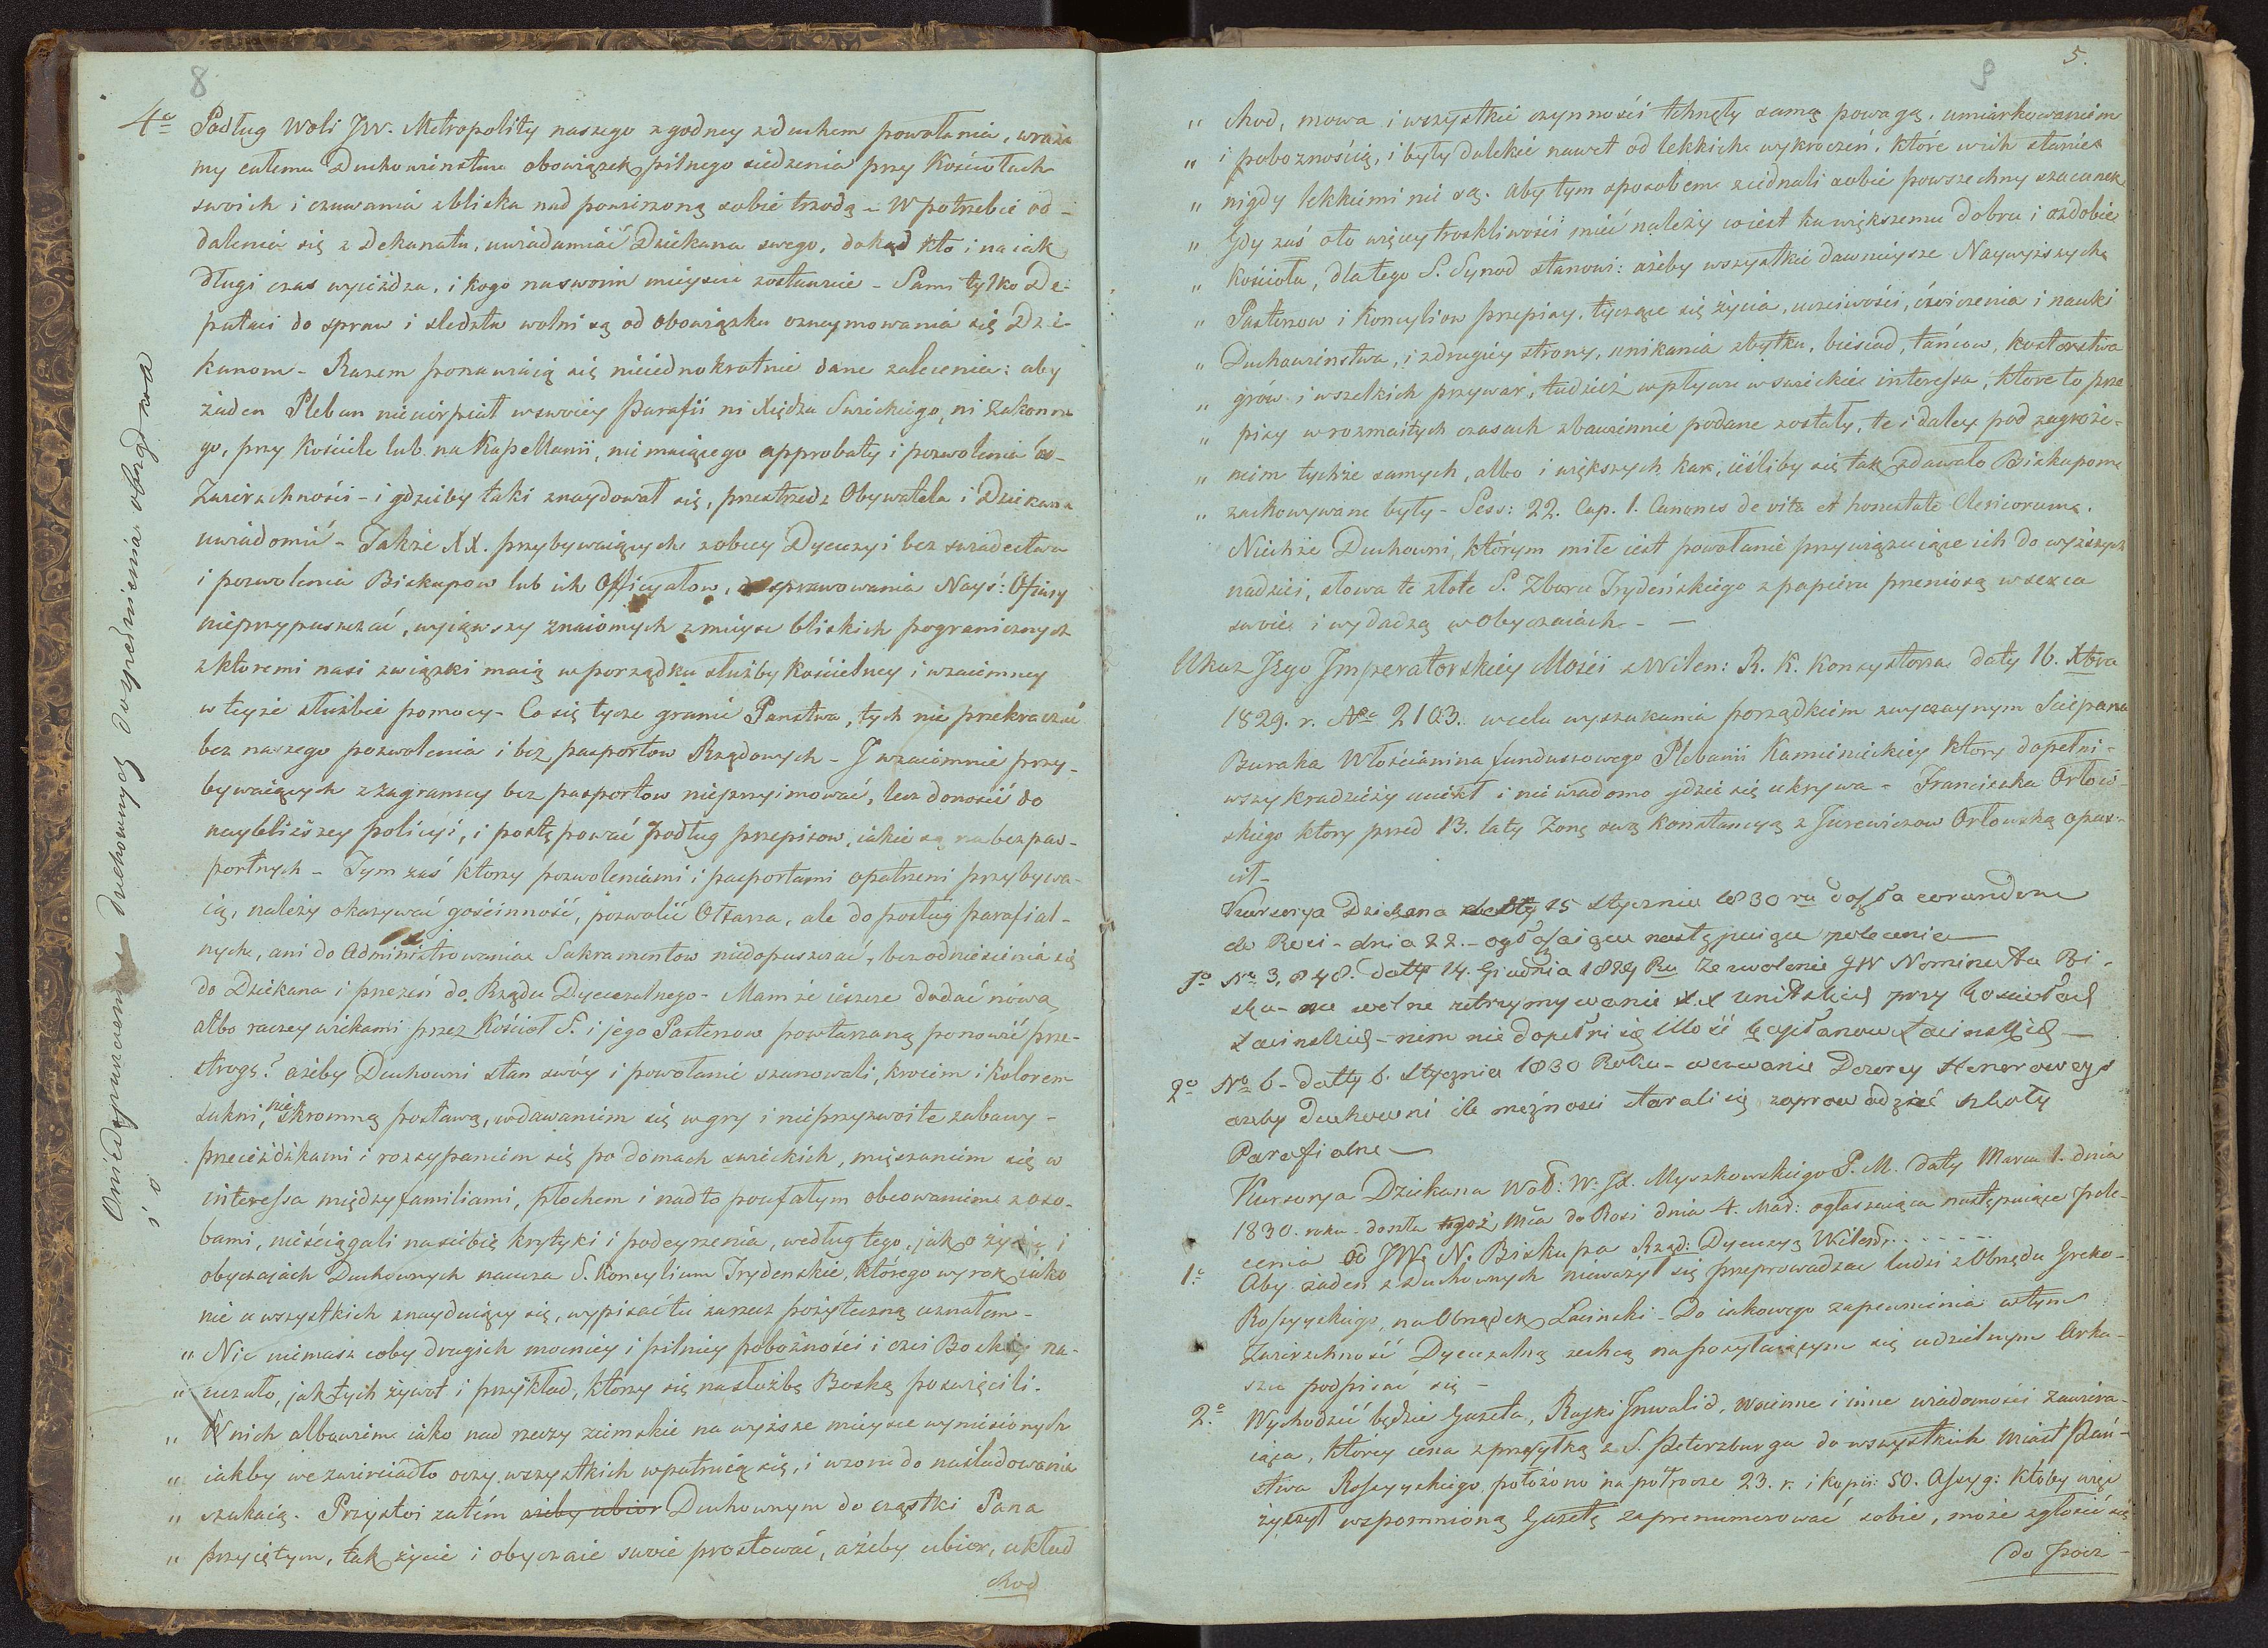 8
4o Podług Woli JW. Metropolity naszego zgodney z duchem powołania, wraża
my całemu Duchowieństwu obowiązek pilnego siedzenia przy Kościołach
swoich i czuwania zbliska nad powierzoną sobie trzodą - W potrzebie od-
dalenia się z Dekanatu, uwiadamiać Dziekana swego, dokąd kto i na iak
długi czas wyieżdża, i kogo na swoim mieyscu zostawuie - Sami tylko De-
putaci do spraw i sledztw wolni są od obowiązku oznaymowania się Dzie-
kanom - Razem ponawiaią się nieiednokrotnie dane zalecenia: aby
żaden Pleban niecierpiał w swoiey Parafii ni Xiędza Swieckiego, ni Zakonne-
go, przy Kościele lub na Kapellanii, nie maiącego approbaty i pozwolenia
Zwierzchności - i gdzieby taki znaydował się, przestrzedz Obywatela i Dziekana
uwiadomić - Także XX. przybywaiących z obcey Dyecezyi bez swiadectwa
i pozwolenia Biskupow lub ich Officyałow, do sprawowania Nayś: Ofiary
nieprzypuszczać, wyiąwszy znaiomych z mieysc bliskich pogranicznych
z ktoremi nasi związki maią w porządku służby kościelney i wzaiemney
w teyże służbie pomocy - Co się tycze granic Panstwa, tych nie przekraczać
bez naszego pozwolenia i bez pasportow Rządowych - I wzaiemnie przy-
bywaiących z zagranicy bez pasportow nieprzyimować, lecz donosić do
naybliższey policyi, i postępować podług przepisow, iakie są na bezpas-
portnych - Tym zaś ktorzy pozwoleniami i pasportami opatrzeni przybywa-
ią, należy okazywać gościnność, pozwolić Ołtarza, ale do posług parafial-
nych, ani do Administrowania Sakramentow niedopuszczać, bez odniesienia się
do Dziekana i przezeń do Rządu Dyecezalnego - Mamże ieszcze dodać nową
albo raczey wiekami przez Kościoł S. i jego Pasterzow powtarzaną ponowić prze-
strogę? ażeby Duchowni stan swóy i powołanie szanowali, kroiem i kolorem
sukni, nieskromną postawą, wdawaniem się w gry i nieprzyzwoite zabawy -
przeieżdżkami i rozsypaniem się po domach swieckich, mięszaniem się w
interessa między familiami, płochem i nadto poufałym obcowaniem z oso-
bami, nieściągali na siebie krytyki i podeyrzenia, według tego, jak o życiu i
obyczajach Duchownych naucza S. Koncylium Trydenskie, którego wyrok iako
nie u wszystkich znayduiący się, wypisać tu zarzecz pożyteczną uznałem -
„ Nic niemasz coby drugich mocniey i pilniey pobożności i czci Boskiey na-
„ uczało, jak tych żywot i przykład, ktorzy się na służbę Boską poswięcili.
„ W nich albowiem iako nad rzeczy ziemskie na wyższe mieysce wyniesionych
„ iakby we zwierciadło oczy wszystkich wpatruią się, i wzoru do naśladowania
„ szukaią. Przystoi zatém ażeby ubior Duchownym do cząstki Pana
„ przyiętym, tak życie i obyczaie swoie prostować, ażeby ubior, układ
chod
Oniedopuszczeniu duchownych do spełnienia obrzęd
i o
9
5.
„ chod, mowa i wszystkie czynności tchnęły samą powagą, umiarkowaniem
„ i pobożnością, i były dalekie nawet od lekkich wykroczeń, które w ich stanie
„ nigdy lekkiemi nie są. Aby tym sposobem ziednali sobie powszechny szacunek
„ Gdy zaś o to więcey troskliwości mieć należy co iest ku większemu dobru i ozdobie
„ kościoła, dlatego S. Synod stanowi: ażeby wszystkie dawnieysze Naywyższych
„ Pasterzow i Koncyliow przepisy, tyczące się życia, uczciwości, ćwiczenia i nauki
„ Duchowieństwa, i z drugiey strony, unikania zbytku, biesiad, tańcow, kosterstwa
„ grów i wszelkich przywar, tudzież wpływu w swieckie interessa, ktore to prze
„ pisy w rozmaitych czasach zbawiennie podane zostały, te i daley pod zagroże-
„ niem tychże samych, albo i większych kar, ieśliby się tak zdawało Biskupom
„ zachowywane były - Sess: 22. Cap. 1. Canones de vita et honestate Clericorum.
Niechże Duchowni, którym miłe iest powołanie przywiązuiące ich do wyższych
nadziei, słowa te złote S. Zboru Trydeńskiego z papieru przeniosą w serca
swoie i wydadzą w Obyczaiach - —
Ukaz Jego Imperatorskiey Mości z Wilen: R. K. Konsystorza daty 16. Xbra
1829. r. No 2103. w celu wyszukania porządkiem zwyczaynym Sciepana
Buraka Włościanina funduszowego Plebanii Kamienieckiey ktory dopełni-
wszy kradzieży uciekł i nie wiadomo gdzie się ukrywa - Franciszka Orłow-
skiego ktory przed 13. laty Zonę swą Konstancyą z Jurewiczow Orłowską opus-
cił -
Kursorya Dziekana datty 15 Stycznia 1830 ru doszła
do Rosi - dnia 22. - ogłaszaiąca następuiące polecenie
1o No 3,848. datty 14. Grudnia 1829 Ru Zezwolenie JW Nominata Bi-
sku- na wolne utrzymywanie X.X Unitskich przy kosciołach
Łacinskich - nim nie dopełni się illość kapłanow Łacinskich —
2o No 6 - datty 6. Stycznia 1830 Roku - wezwanie Dozorcy Honorowego
azeby Duchowni ile możnosci starali się zaprowadzić szkoły
Parafialne —
Kursorya Dziekana Woł: W. JX. Myszkowskiego P. M. daty Marca 1. dnia
1830. roku - doszła tegoż Mca do Rosi dnia 4. Mar: ogłaszaiąca następuiące pole-
cenia od JW. N. Biskupa Rząd: Dyecezyą Wileń. . . . . . .
1.o Aby żaden z Duchownych nieważył się przeprowadzać ludzi z Obrzędu Greko-
Rossyyskiego, na Obrządek Łacinski - Do iakowego zapewnienia w tym
Zwierzchność Dyecezalną zechcą na posyłaiącym się udzielnym Arku-
szu podpisać się -
2.o Wychodzić będzie Gazeta, Ruski Inwalid, Woienne i inne wiadomości zawiera-
iąca, którey cena z przesyłką z S. Petersburga do wszystkich Miast Pań-
stwa Rossyyskiego położono na połrocze 23. r. i kopii: 50. Assyg: Ktoby więc
życzył wspomnioną Gazetę zaprenumerować sobie, może zgłosić się
do pocz-